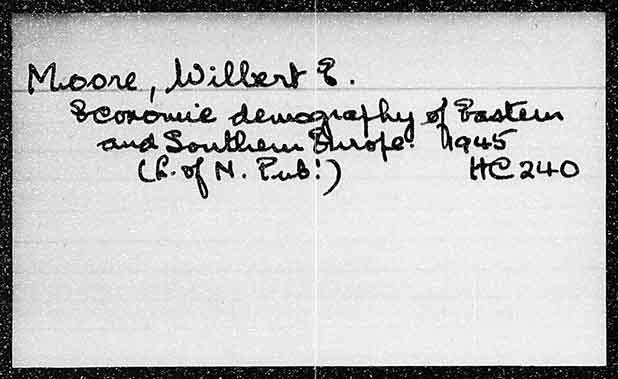 Moore, Wilbert E.
Economic demography of Eastern
and Southern Europe. 1945
(L. of N. Pub:) HC 240